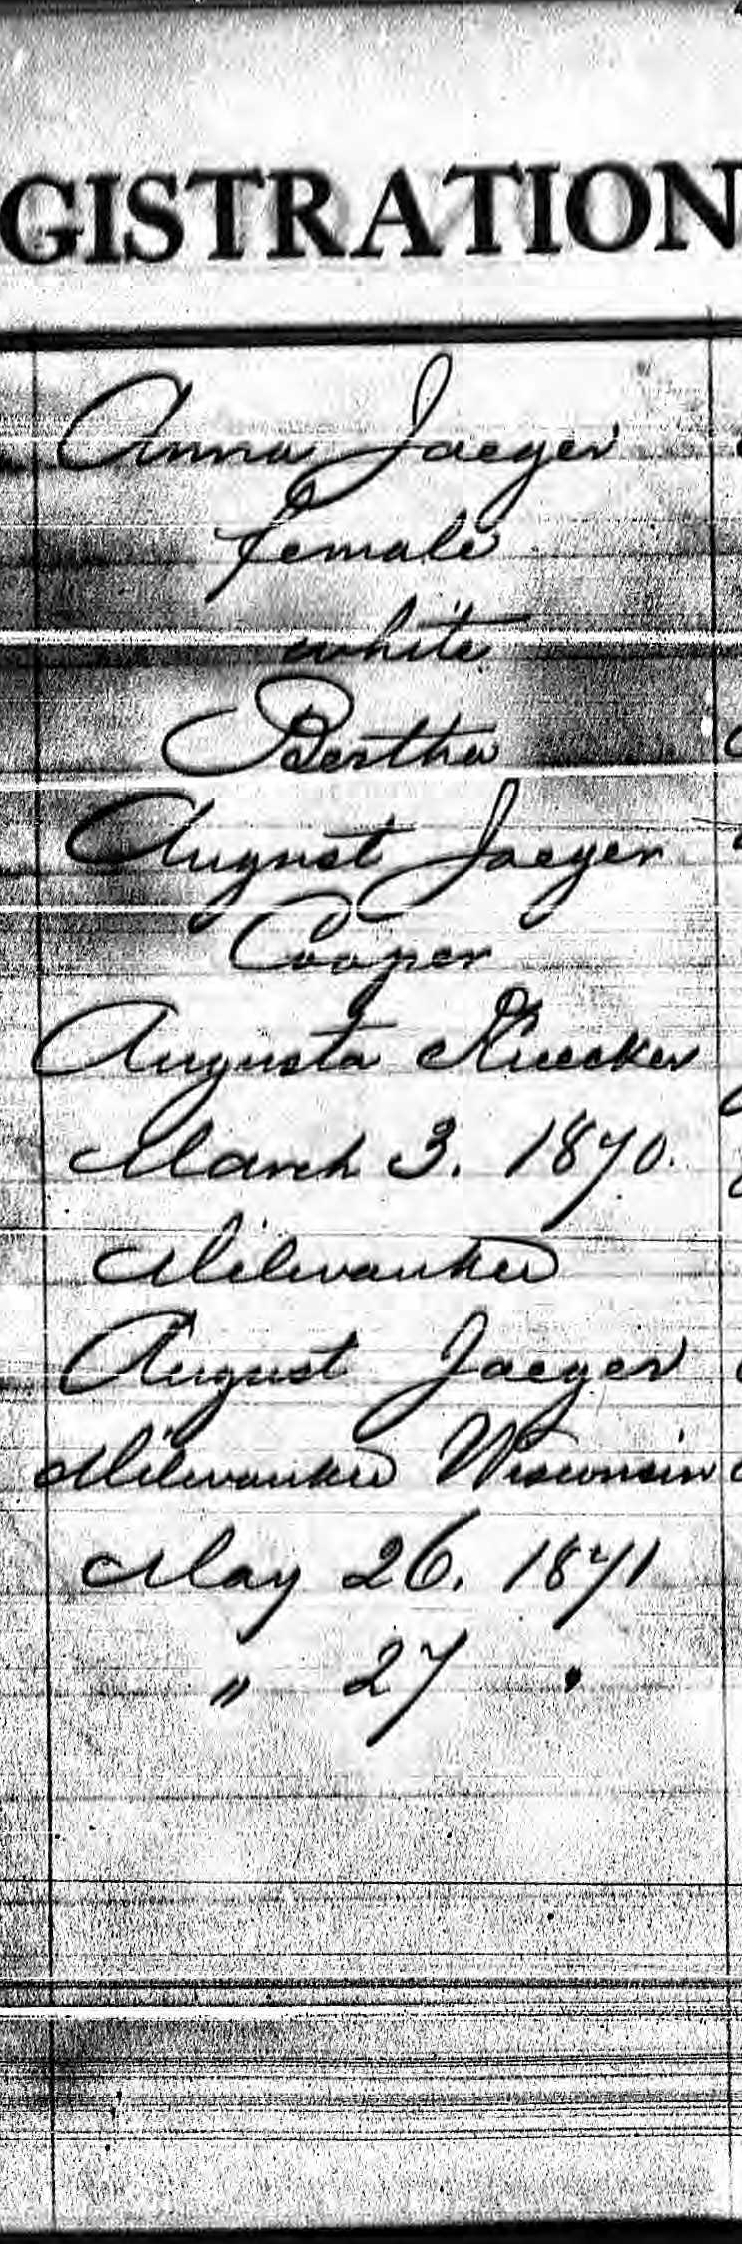 GISTRATION
Anna Jaeger
female
white
Bertha
August Jaeger
Cooper
Augusta Kuecker
March 3. 1870.
Milwaukee
August Jaeger
Milwaukee Wisconsin
May 26. 1871
" 27 "